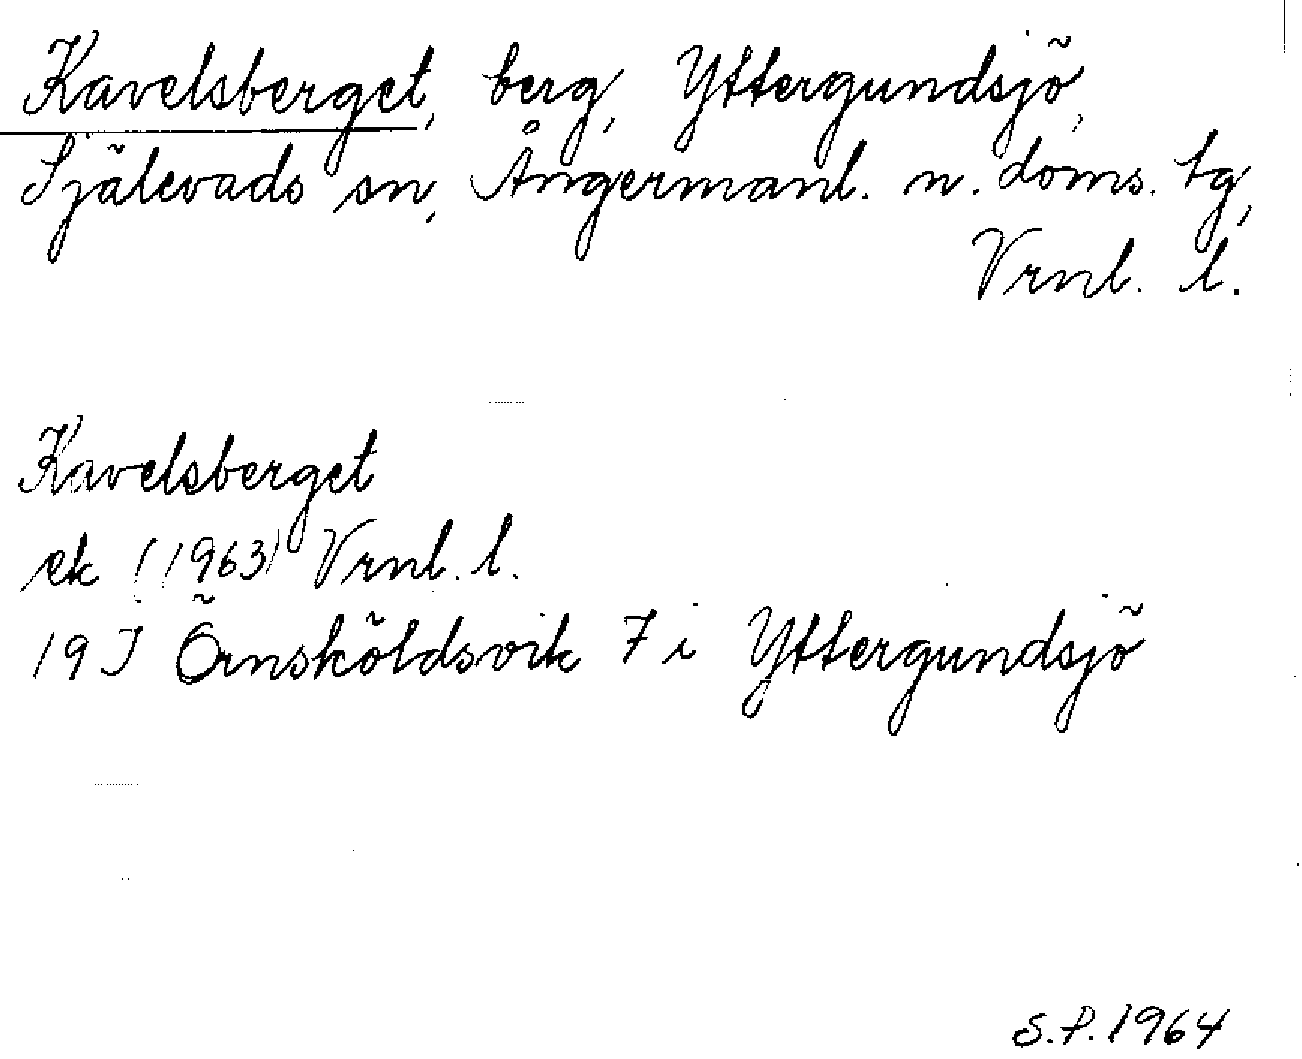 Kavelsberget, berg, Yttergundsjö,
Själevads sn, Ångermanl. n. doms. tg,
Vrnl. l.
Kavelsberget
ek (1963) Vrnl. l.
19 J Örnsköldsvik 7 i Yttergundsjö
S.P. 1964